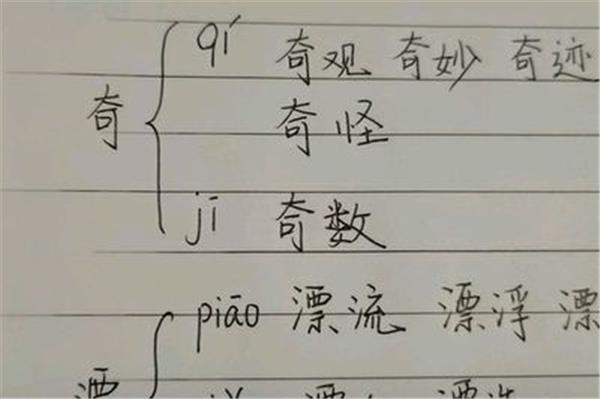 qí 奇观 奇妙 奇迹
奇 奇怪
jī 奇数
piāo 漂流 漂浮 漂
漂